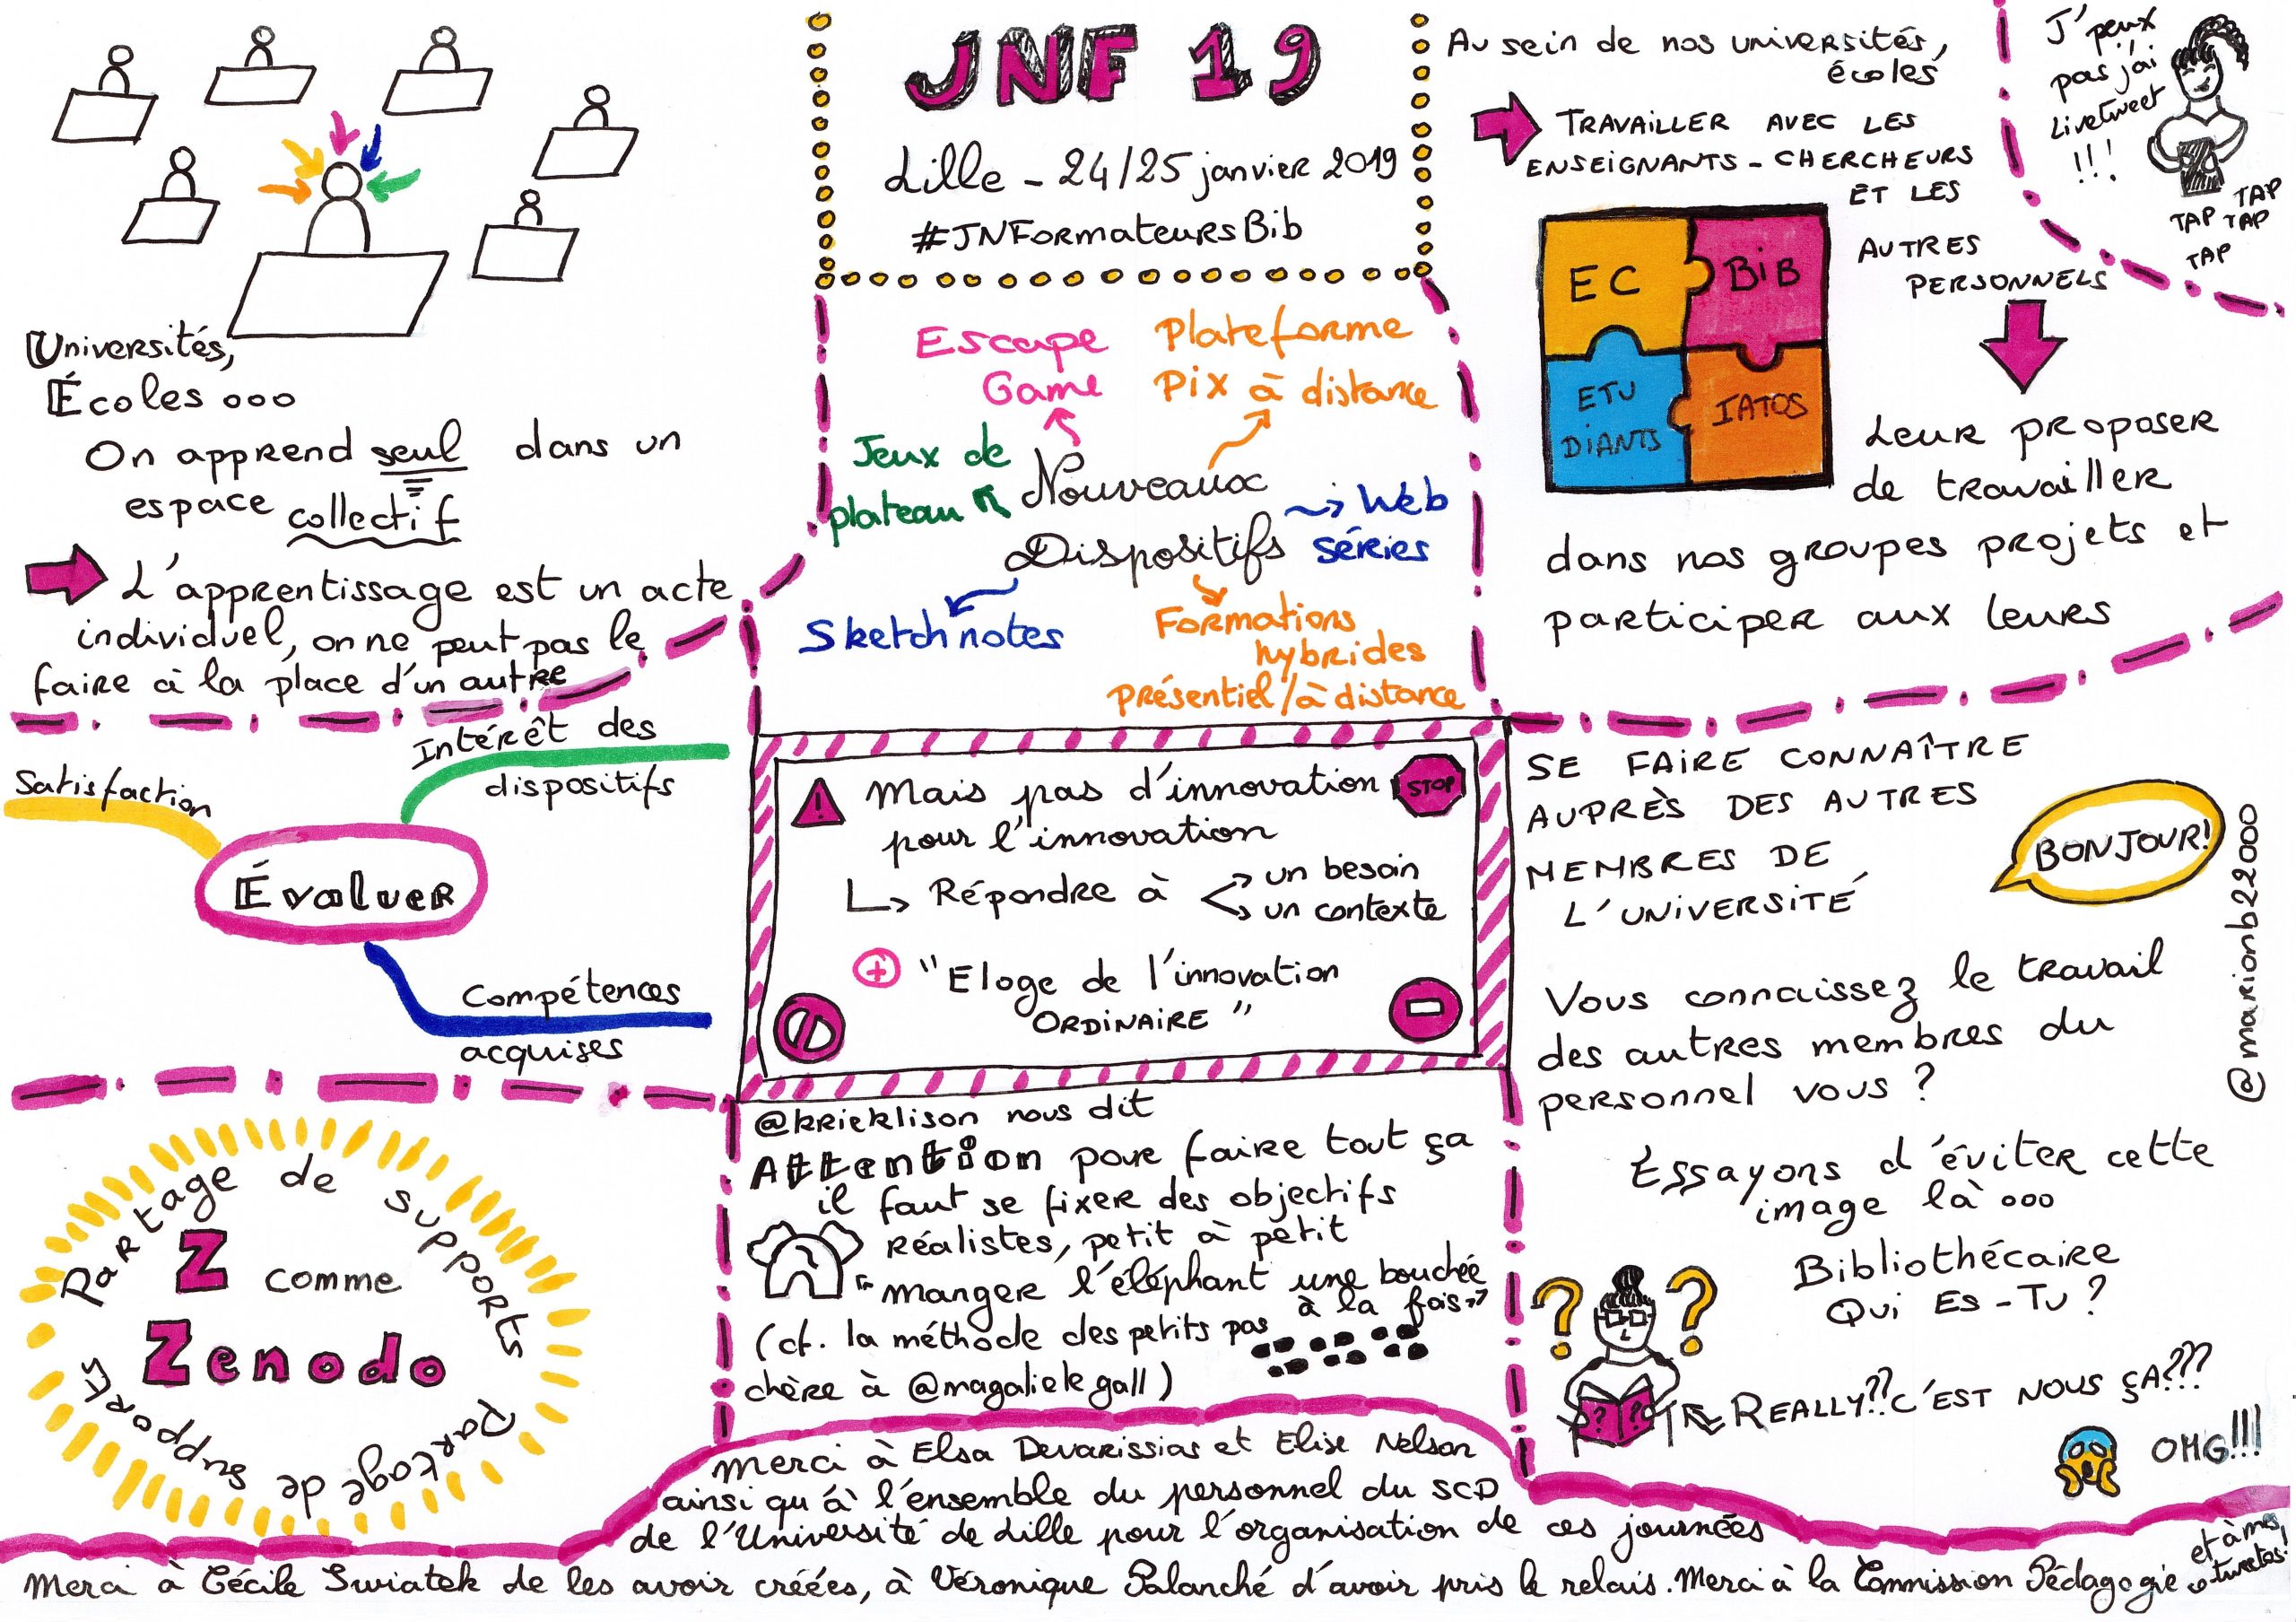 JNF 19
Lille - 24/25 janvier 2019
#JNFormateursBib
Universités,
Écoles ...
On apprend seul dans un
espace collectif
L'apprentissage est un acte
individuel, on ne peut pas le
faire à la place d'un autre
Escape
Game
Plateforme
Pix à distance
Jeux de
plateau
Nouveaux
Dispositifs
Web
séries
Sketchnotes
Formations
hybrides
présentiel/à distance
Au sein de nos universités,
écoles
TRAVAILLER AVEC LES
ENSEIGNANTS-CHERCHEURS
ET LES
AUTRES
PERSONNELS
EC
BIB
ETU
DIANTS
IATOS
Leur proposer
de travailler
dans nos groupes projets et
participer aux leurs
J'peux
pas j'ai
Livetweet
!!!
TAP
TAP TAP
TAP
Satisfaction
Intérêt des
dispositifs
Évaluer
Compétences
acquises
Mais pas d'innovation
pour l'innovation
STOP
Répondre à
un besoin
un contexte
+ "Eloge de l'innovation
ORDINAIRE"
SE FAIRE CONNAÎTRE
AUPRÈS DES AUTRES
MEMBRES DE
L'UNIVERSITÉ
BONJOUR!
@marionb22000
Vous connaissez le travail
des autres membres du
personnel vous ?
Essayons d'éviter cette
image là ...
Bibliothécaire
Qui ES-TU ?
? ?
? ?
REALLY??C'EST NOUS ÇA???
OMG!!!
Partage de supports
Z comme
Zenodo
Partage de supports
@krieklison nous dit
Attention pour faire tout ça
il faut se fixer des objectifs
réalistes, petit à petit
"manger l'éléphant une bouchée
à la fois"
(cf. la méthode des petits pas
chère à @magalielegall)
Merci à Elsa Devarissias et Elise Nelson
ainsi qu'à l'ensemble du personnel du SCD
de l'Université de Lille pour l'organisation de ces journées
Merci à Cécile Swiatek de les avoir créées, à Véronique Palanché d'avoir pris le relais. Merci à la Commission Pédagogie
et à mes